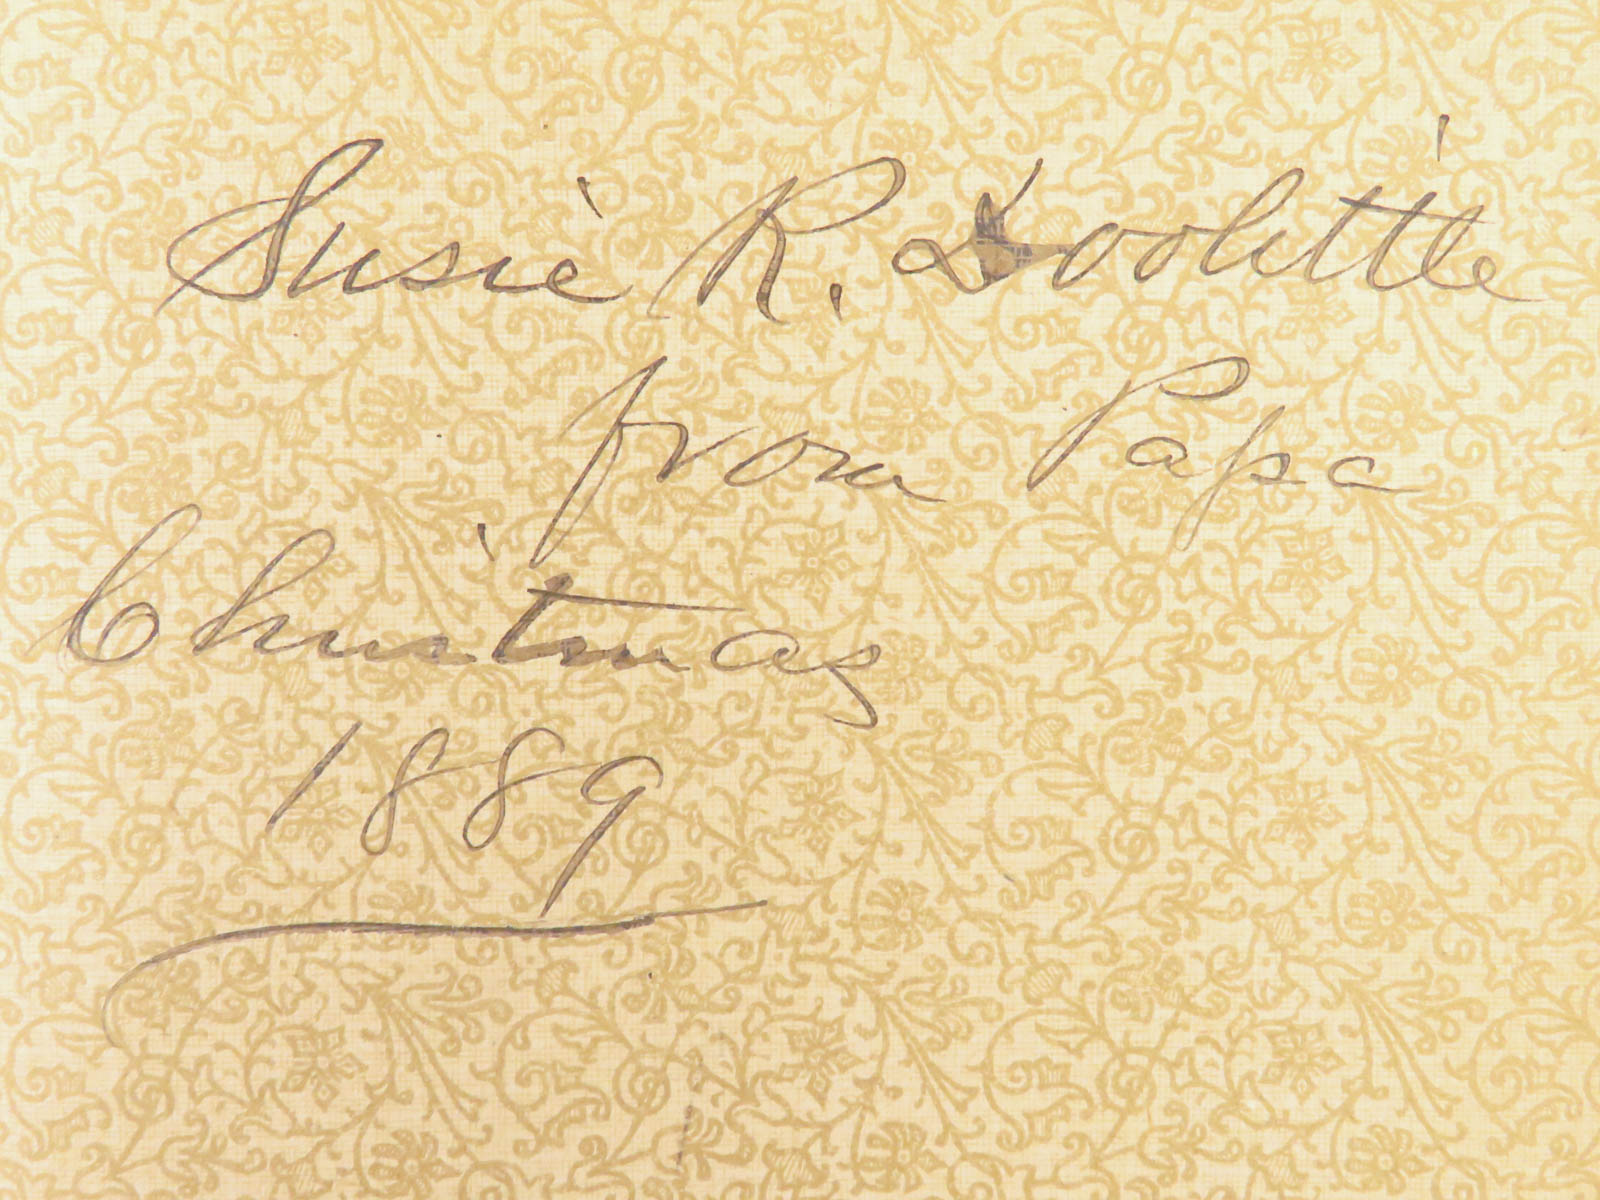 Susie R. Doolittle
from Papa
Christmas
1889